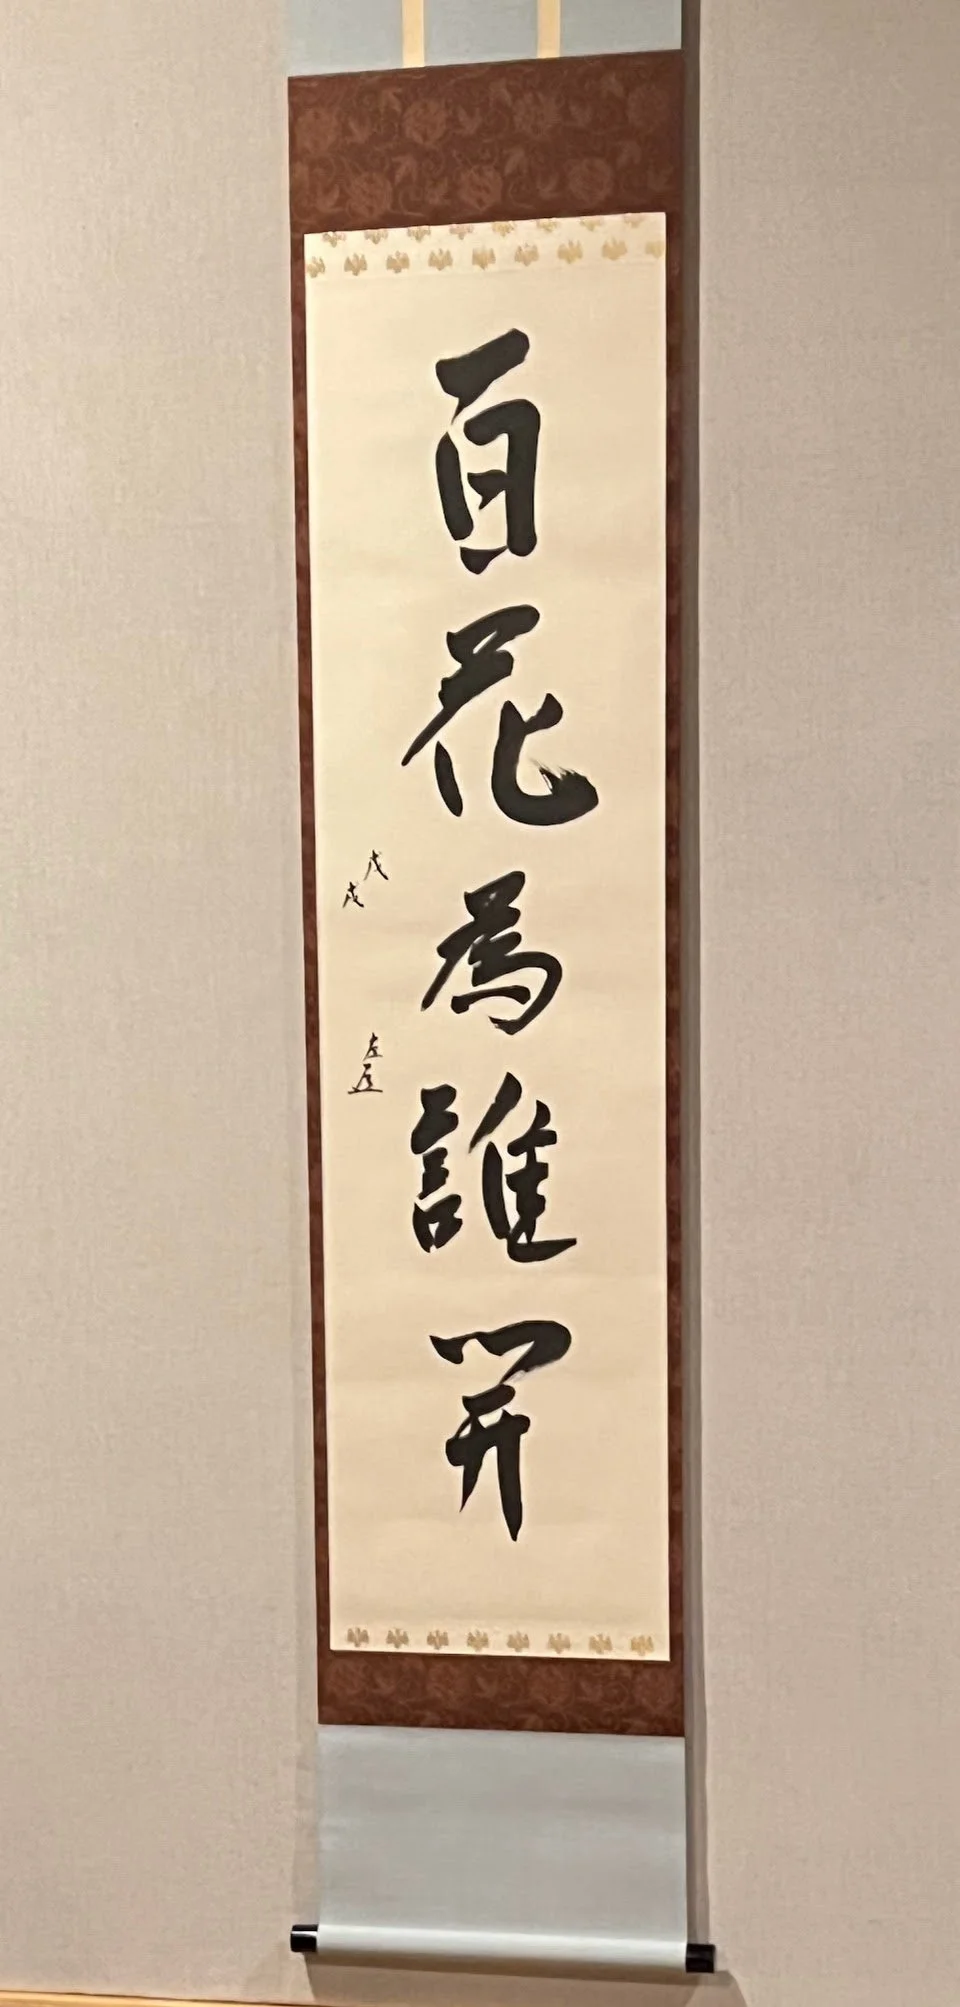 百花為誰開
戊戌